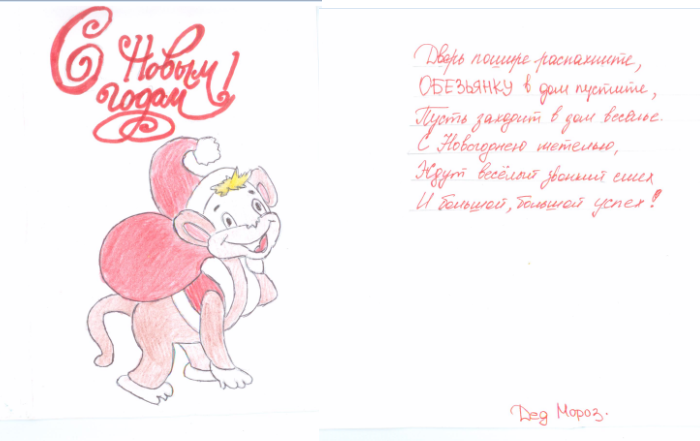 С Новым
годом!
Дверь пошире распахните,
ОБЕЗЬЯНКУ в дом пустите,
Пусть заходит в дом веселье.
С Новогоднею метелью,
Ждут весёлый звонкий смех
И большой, большой успех!
Дед Мороз.